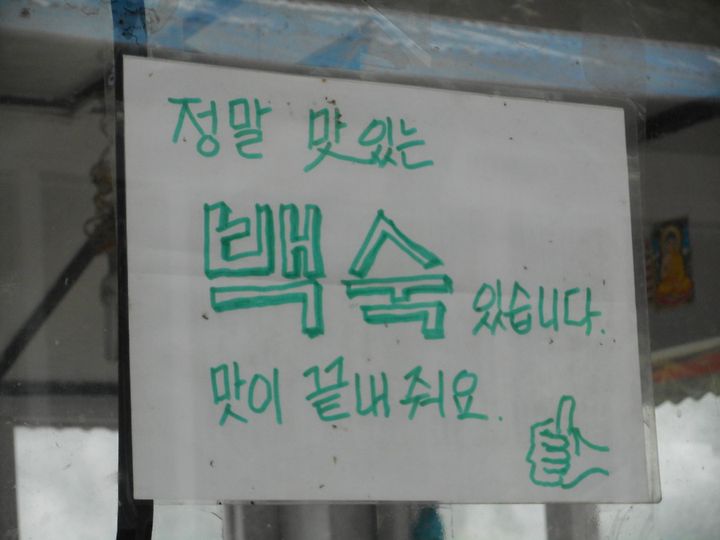 정말 맛있는
백숙 있습니다.
맛이 끝내줘요.